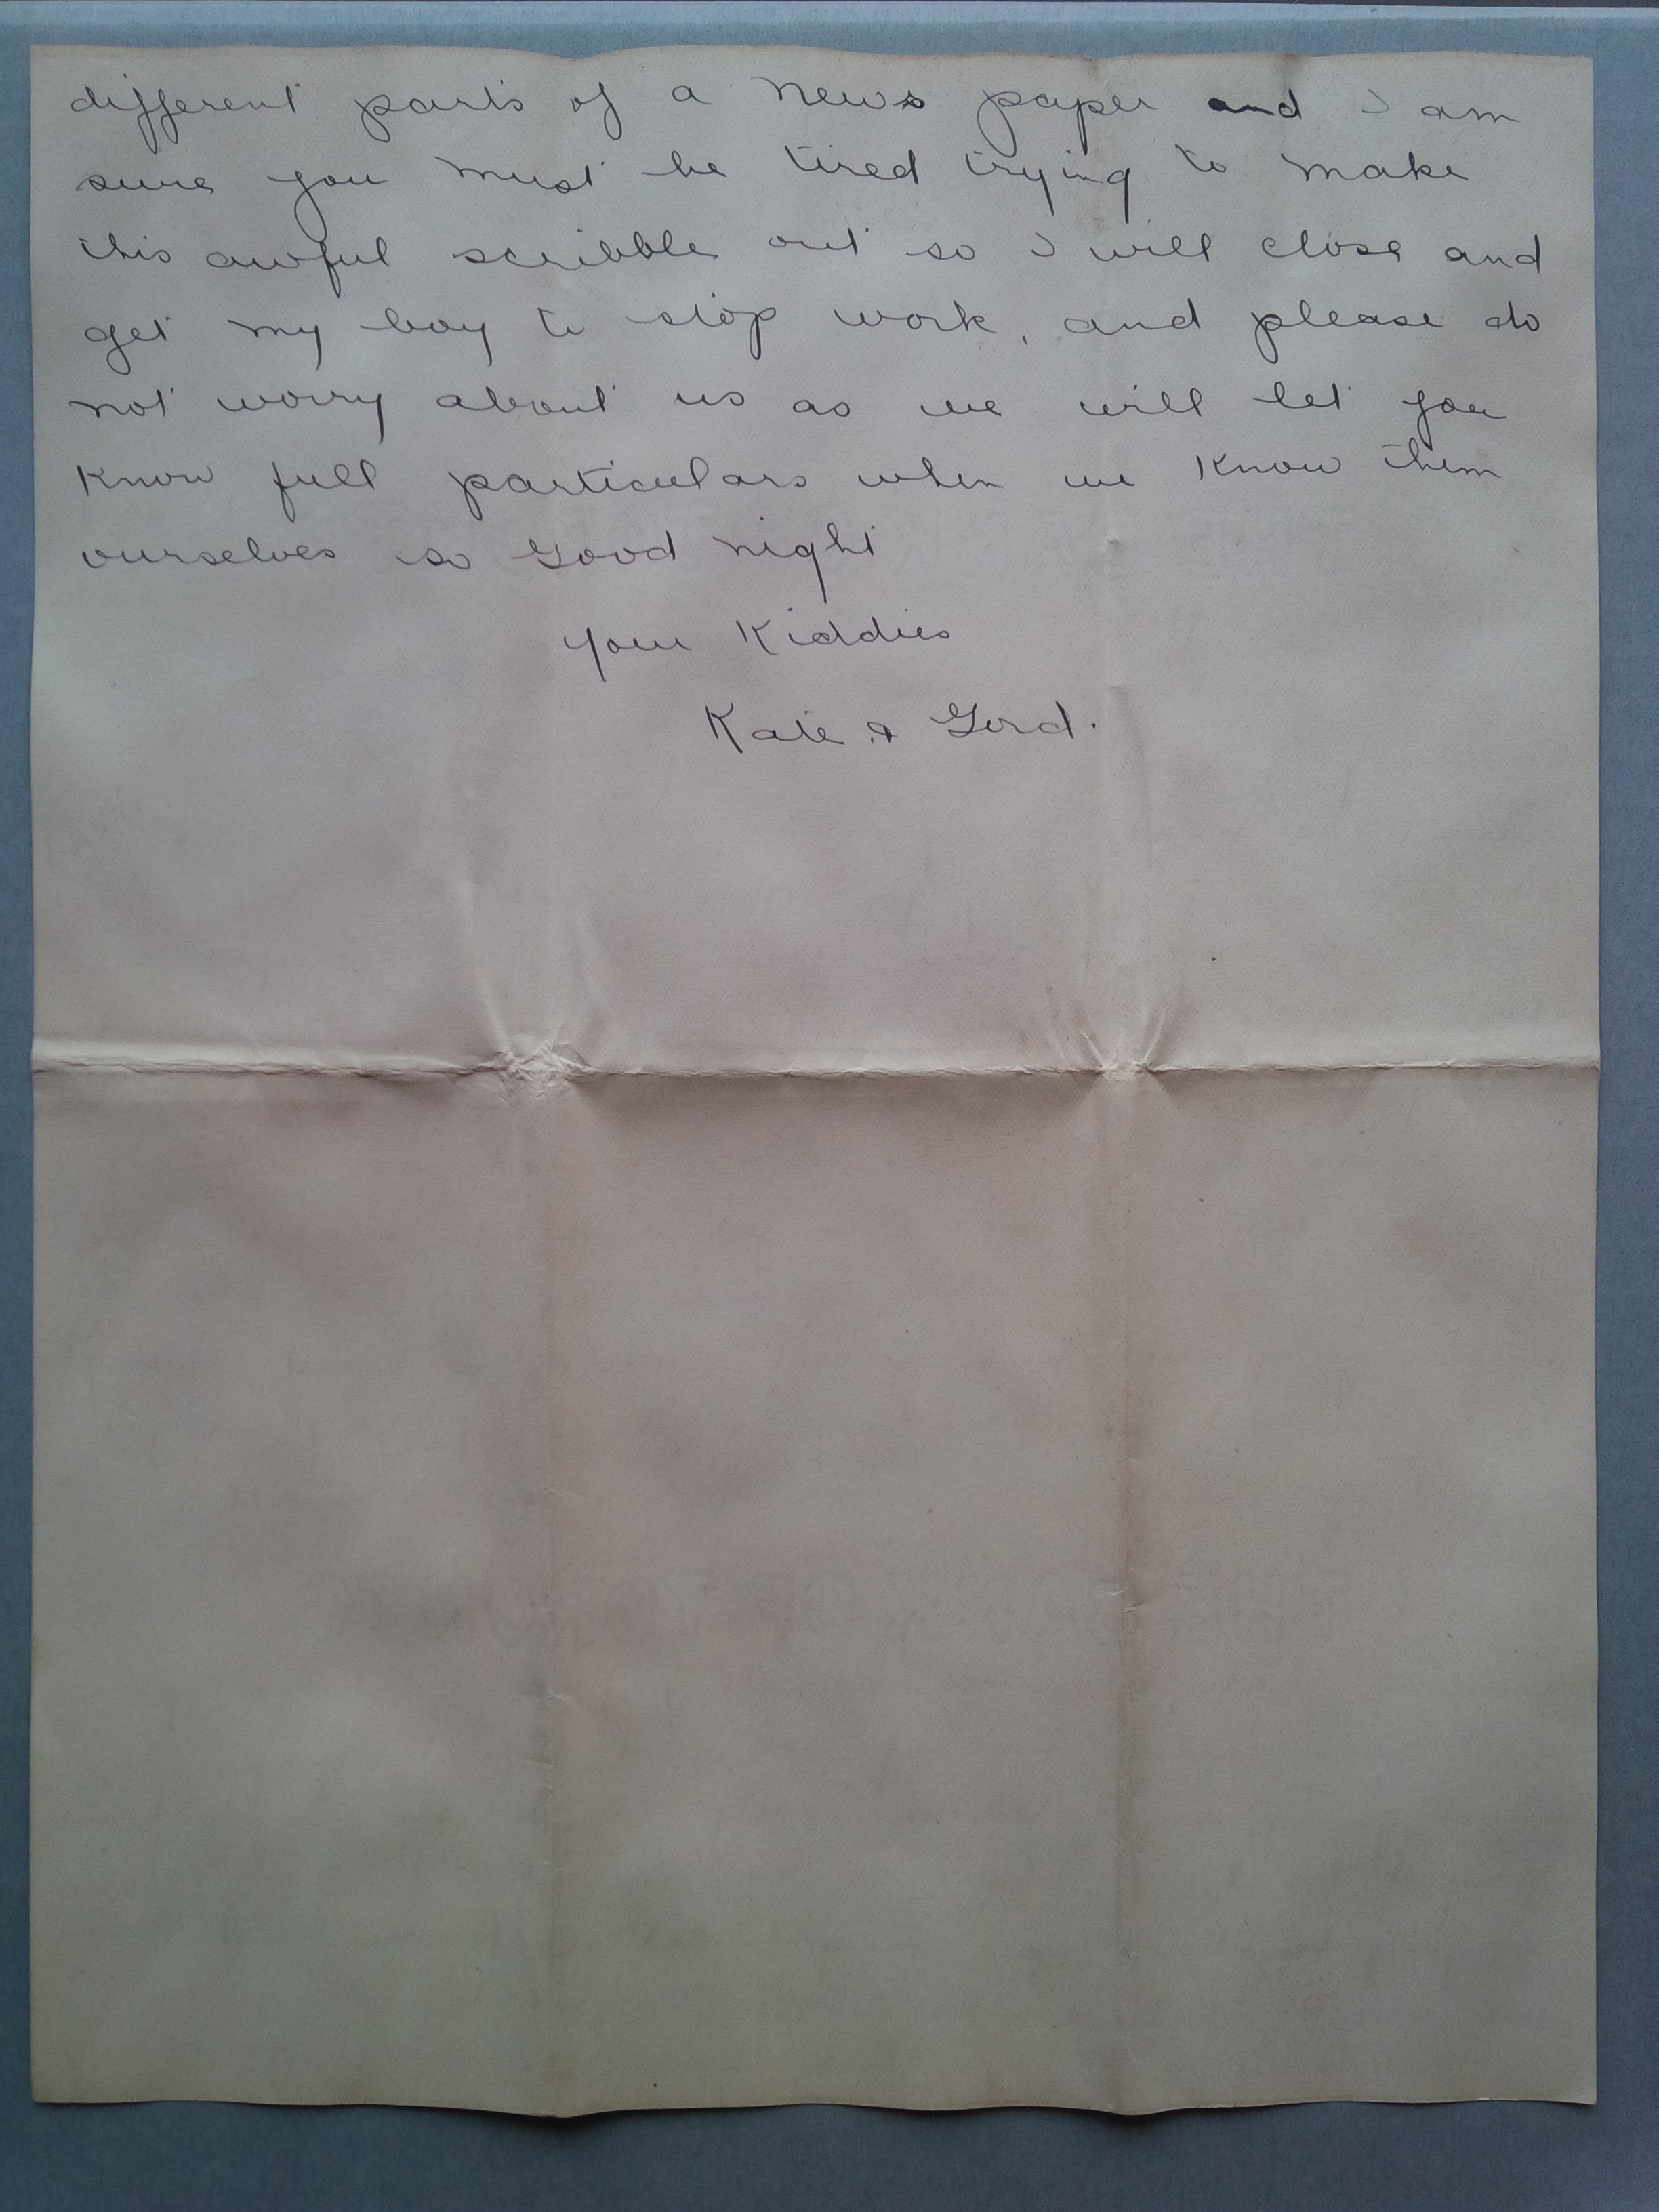 different parts of a news paper and I am
sure you must be tired trying to make
this awful scribble out so I will close and
get my boy to stop work, and please do
not worry about us as we will let you
Know full particulars when we Know them
ourselves so Good night
Your Kiddies
Kate & Gord.